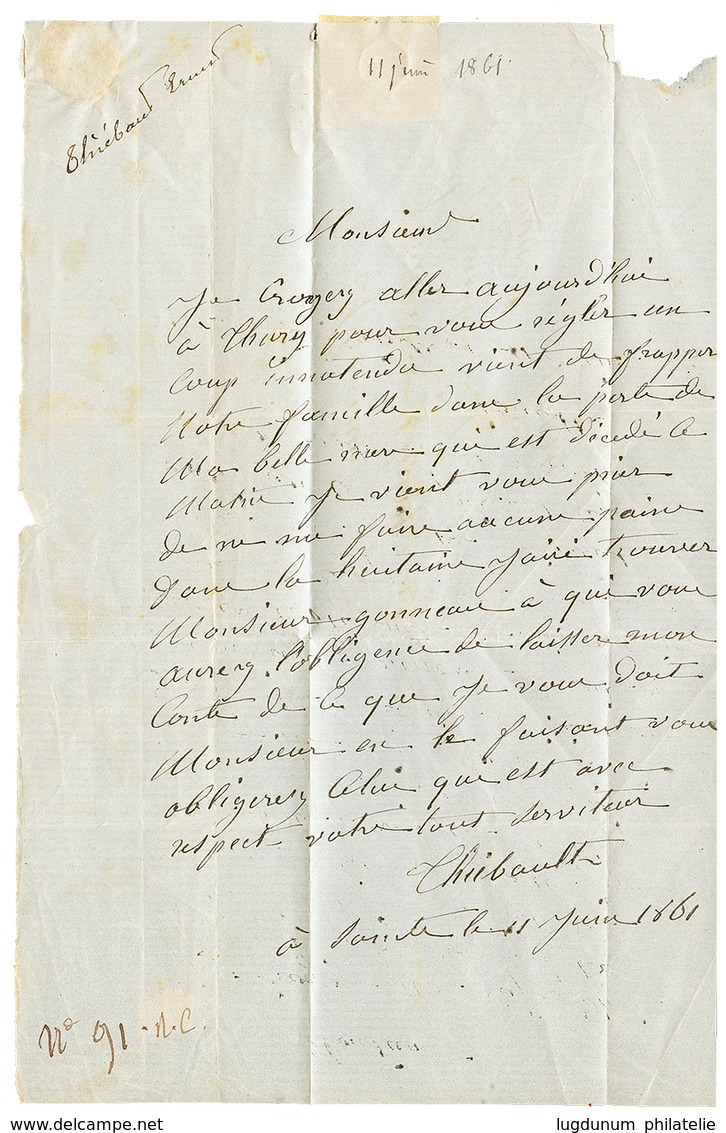 Thiébaud Ernest
11 juin 1861
Monsieur
Je Croyez aller aujourd'hui
à Thury pour vous régler un
Coup innatendu vient de frapper
Notre famille dans la perte de
Ma belle mere qui est décédé Ce
Matin Je vient vous prier
de ne me faire aucune peine
dans la huitaine J'airé trouver
Monsieur gonneau à qui vous
aurez l'obligence de laisser mon
Conte de Ce que Je vous doit
Monsieur en le faisant vous
obligerez Celui qui est avec
respect votre tout serviteur
Thiebault
à Sainte le 11 Juin 1861
N° 91 . N.C.
www.delcampe.net
lugdunum philatelie